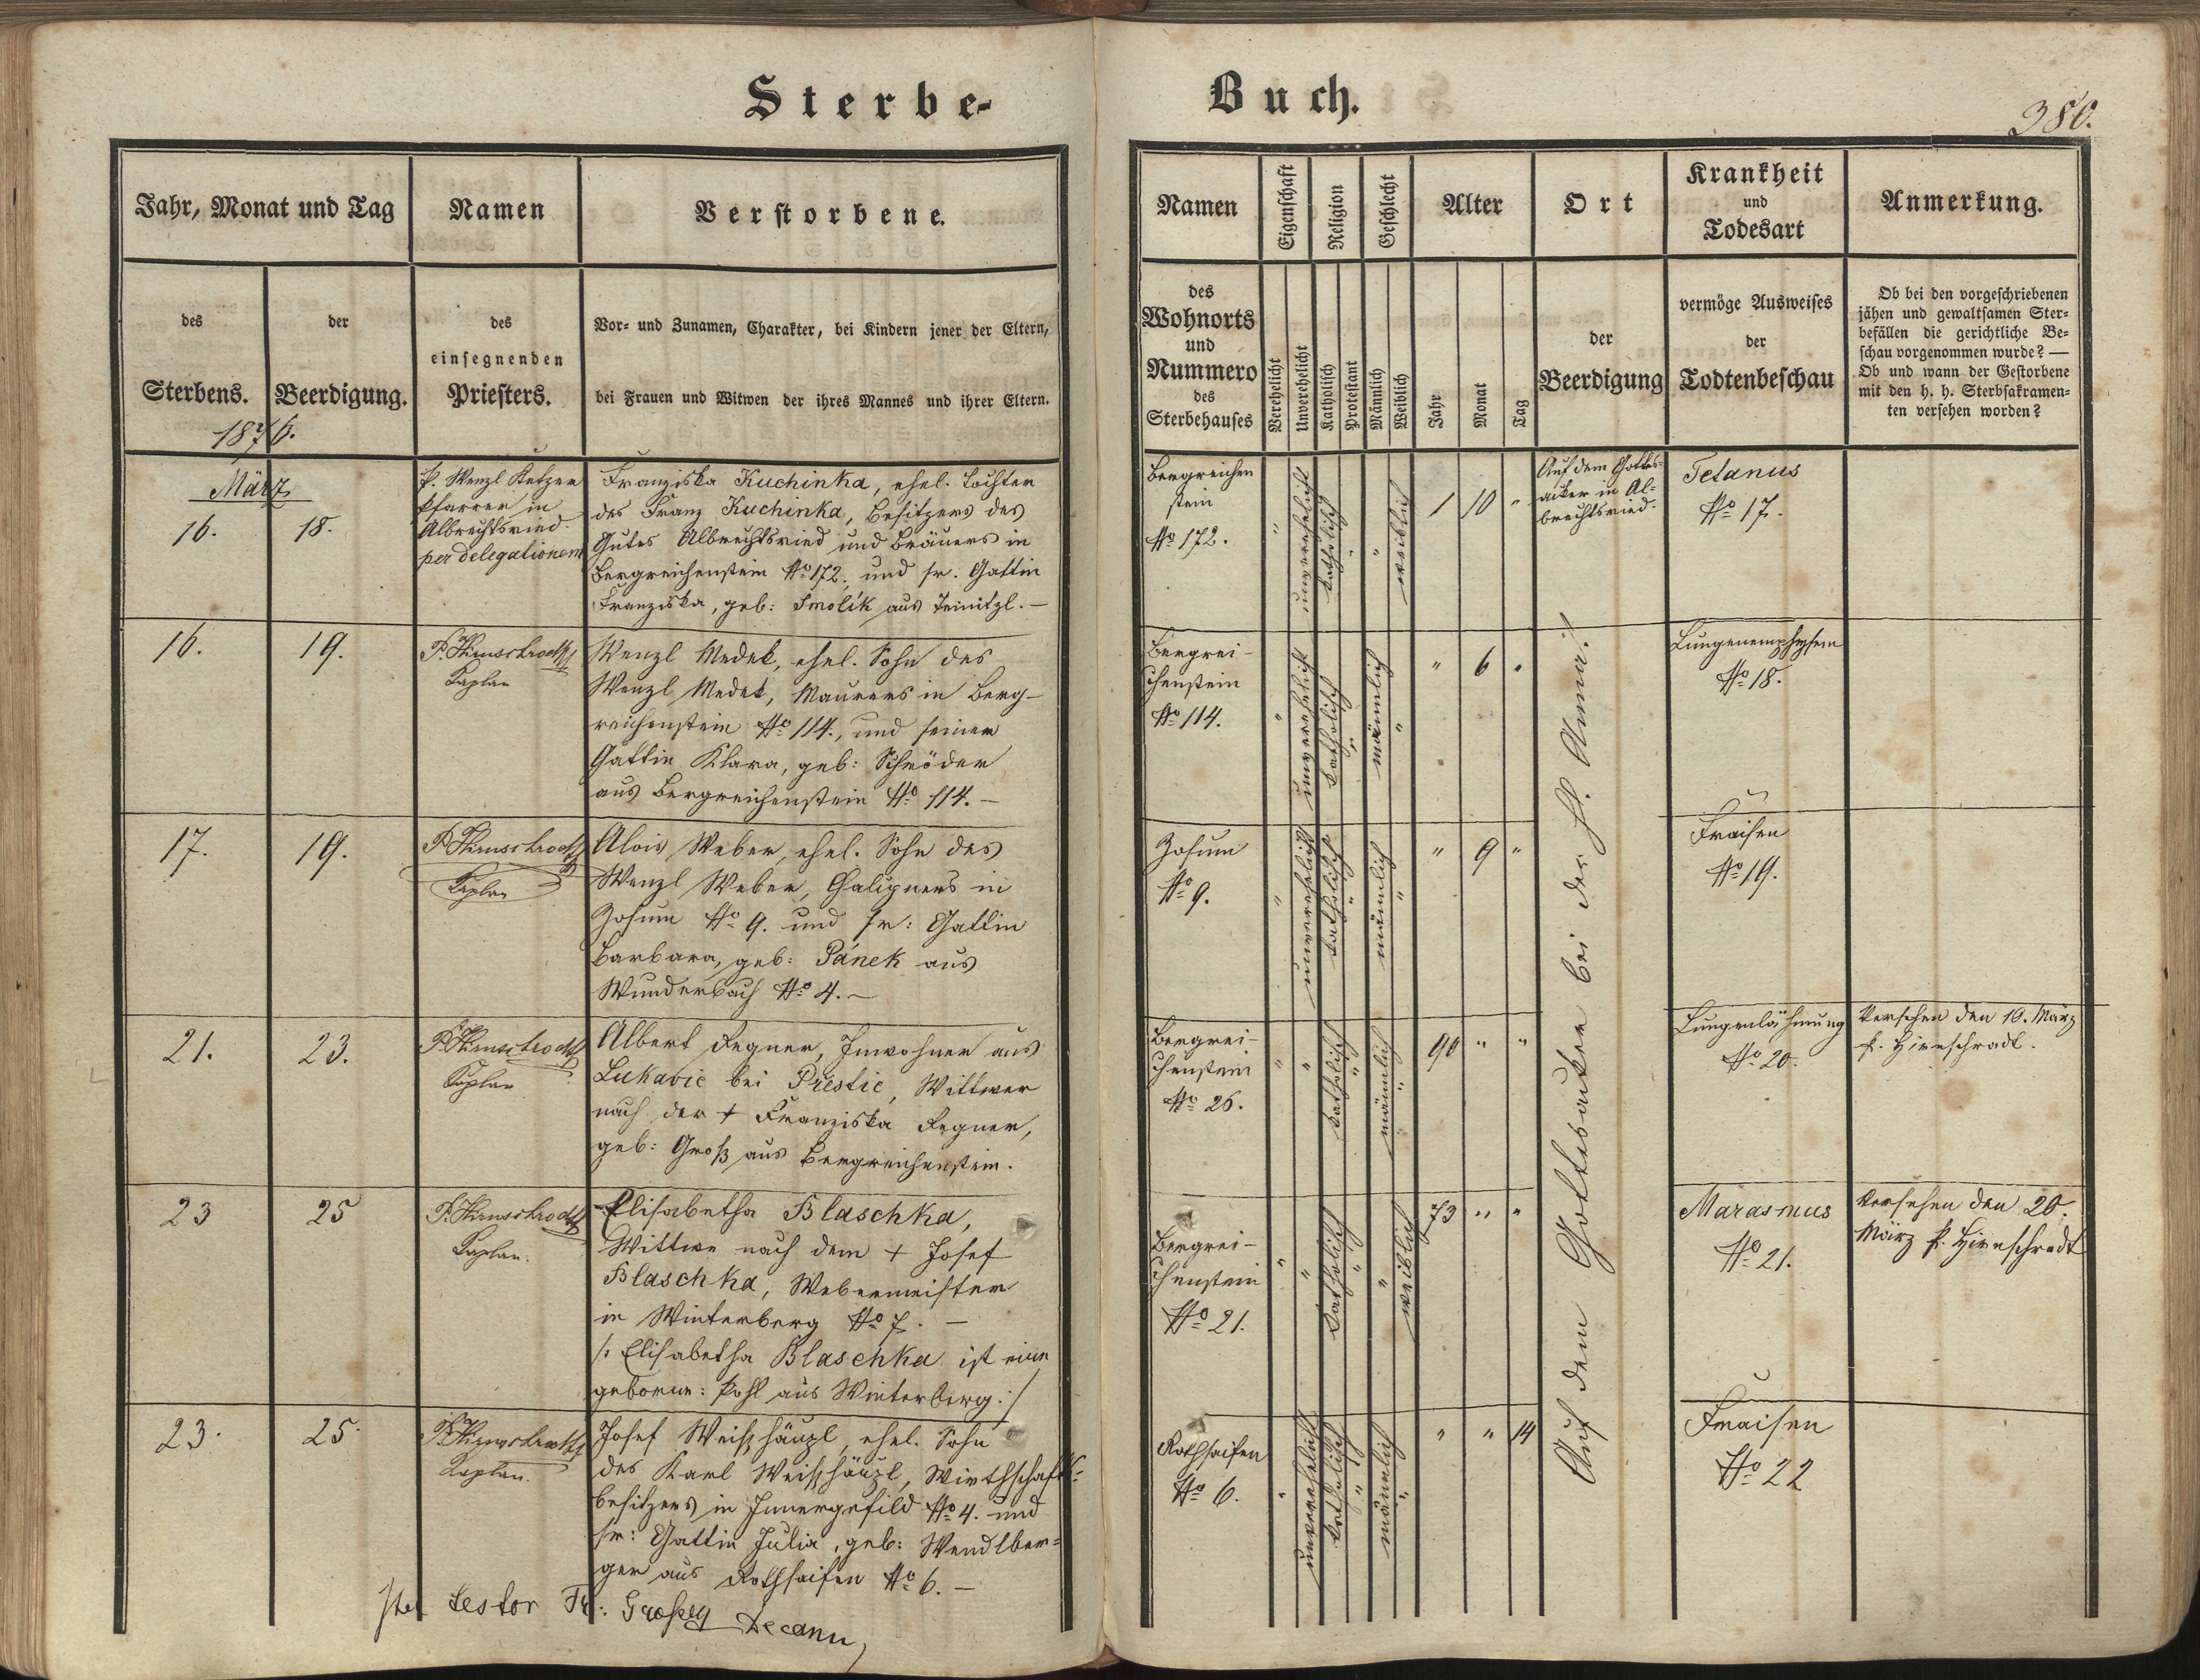 Sterbe-
Buch.
380.
Jahr, Monat und Tag
Namen
Verstorbene.
des
Sterbens.
der
Beerdigung.
des
einsegnenden
Priesters.
Vor- und Zunamen, Charakter, bei Kindern jener der Eltern,
bei Frauen und Witwen der ihres Mannes und ihrer Eltern.
Namen
Eigenschaft
Religion
Geschlecht
Alter
Ort
Krankheit
und
Todesart
Anmerkung.
des
Wohnorts
und
Nummero
des
Sterbehauses
Verehelicht
Unverehelicht
Katholisch
Protestant
Männlich
Weiblich
Jahr
Monat
Tag
der
Beerdigung
vermöge Ausweises
der
Todtenbeschau
Ob bei den vorgeschriebenen
jähen und gewaltsamen Ster-
befällen die gerichtliche Be-
schau vorgenommen wurde? —
Ob und wann der Gestorbene
mit den h. h. Sterbsakramen-
ten versehen worden?
1876.
März
16.
18.
P. Wenzl Ketzer
Pfarrer in
Albrechtsried
per delegationem
Franziska Kuchinka, ehel. Tochter
des Franz Kuchinka, Besitzers des
Gutes Albrechtsried und Bräuers in
Bergreichenstein No 172. und sr. Gattin
Franziska, geb: Smolík aus Teinitzl. —
Bergreichen
stein
No 172.
"
unverehelicht
katholisch
"
"
weiblich
1
10
"
Auf dem Gottes-
acker in Al-
brechtsried.
Tetanus
No 17.
16.
19.
Kaplan
Wenzl Medek, ehel. Sohn des
Wenzl Medek, Maurers in Berg-
reichenstein No 114., und seiner
Gattin Klara, geb: Schröder
aus Bergreichenstein No 114. —
Bergrei-
chenstein
No 114.
"
unverehelicht
katholisch
"
männlich
"
"
6
"
Auf dem Gottesacker bei der hl. Anna.
Lungenemphysem
No 18.
17.
19.
Kaplan
Alois Weber, ehel. Sohn des
Wenzl Weber, Chalupners in
Zosum No 9. und sr: Gattin
Barbara, geb: Pánek aus
Wunderbach No 4. —
Zosum
No 9.
"
unverehelicht
katholisch
"
männlich
"
"
9
"
Fraisen
No 19.
21.
23.
Kaplan
Albert Regner, Inwohner aus
Lukavic bei Přestic, Wittwer
nach der + Franziska Regner,
geb: Groß aus Bergreichenstein.
Bergrei-
chenstein
No 26.
"
"
katholisch
"
männlich
"
90
"
"
Lungenlähmung
No 20.
Versehen den 16. März
P. Hirnschrodl.
23
25
Kaplan.
Elisabetha Blaschka,
Wittwe nach dem + Josef
Blaschka, Webermeister
in Winterberg No 7. —
/: Elisabetha Blaschka ist eine
geborene: Pohl aus Winterberg. :/
Bergrei-
chenstein
No 21.
"
"
katholisch
"
"
weiblich
73
"
"
Marasmus
No 21.
Versehen den 20.
März P. Hirnschrodl
23.
25.
Kaplan.
Josef Weishäupl, ehel. Sohn
des Karl Weishäupl, Wirthschafts-
besitzers in Innergefild No 4. und
sr: Gattin Julia, geb: Wendlber-
ger aus Rothsaifen No 6. —
Rothsaifen
No 6.
"
unverehelicht
katholisch
"
männlich
"
"
"
14
Fraisen
No 22
testor Fr: